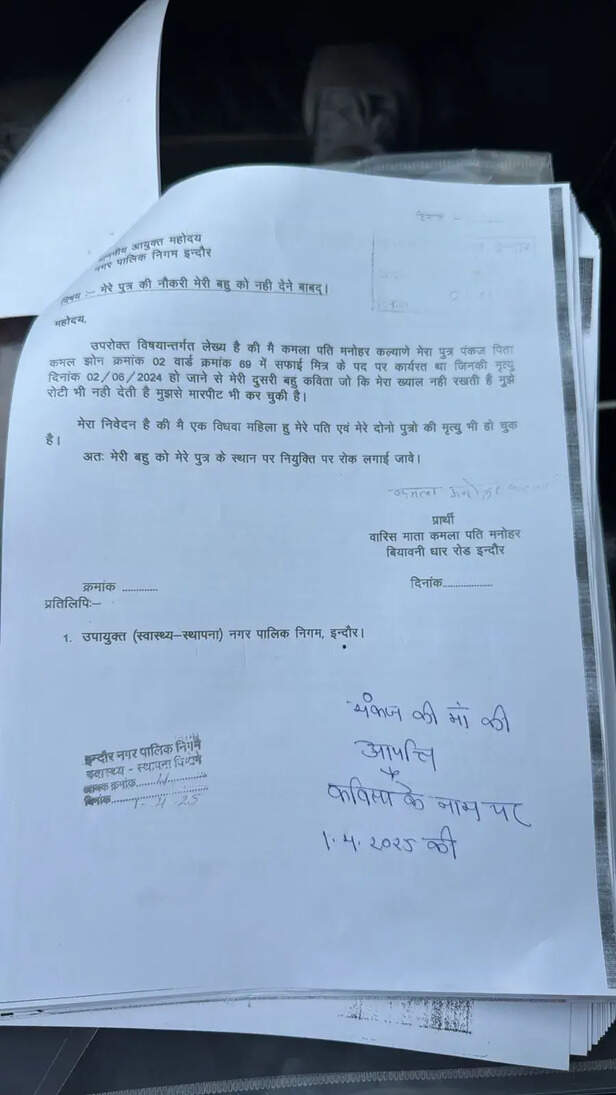 माननीय आयुक्त महोदय
नगर पालिक निगम इन्दौर
विषय :– मेरे पुत्र की नौकरी मेरी बहु को नही देने बाबद्।
महोदय,
उपरोक्त विषयान्तर्गत लेख्य है की मै कमला पति मनोहर कल्याणे मेरा पुत्र पंकज पिता
कमल झोन क्रमांक 02 वार्ड क्रमांक 69 में सफाई मित्र के पद पर कार्यरत था जिनकी मृत्यु
दिनांक 02/06/2024 हो जाने से मेरी दुसरी बहु कविता जो कि मेरा ख्याल नही रखती है मुझे
रोटी भी नही देती है मुझसे मारपीट भी कर चुकी है।
मेरा निवेदन है की मै एक विधवा महिला हु मेरे पति एवं मेरे दोनो पुत्रो की मृत्यु भी हो चुक
है।
अतः मेरी बहु को मेरे पुत्र के स्थान पर नियुक्ति पर रोक लगाई जावे।
कमला
प्रार्थी
वारिस माता कमला पति मनोहर
बियावनी धार रोड इन्दौर
क्रमांक ............
दिनांक.................
प्रतिलिपिः–
1. उपायुक्त (स्वास्थ्य–स्थापना) नगर पालिक निगम, इन्दौर।
पंकज की मां की
आपत्ति
कविता के नाम पर
1.4.2025 की
इन्दौर नगर पालिक निगम
स्वास्थ्य - स्थापना विभाग
आवक क्रमांक..........
दिनांक..........1.4.25